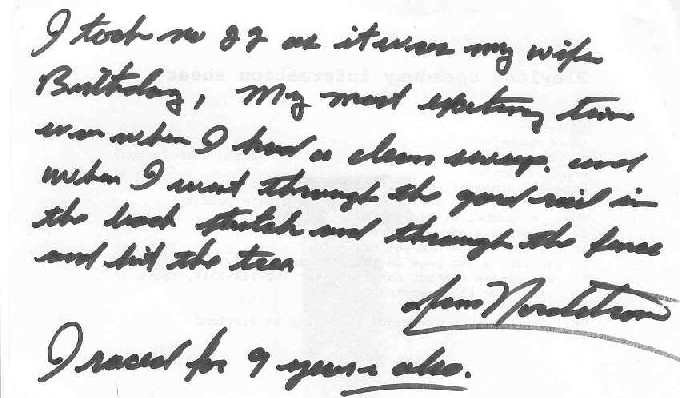 I took no 22 as it was my wife
Birthday, My most exciting time
was when I had a clean sweep, and
when I went through the gard rail in
the back stretch and through the fence
and hit the tree
Nordstrom
I raced for 9 years also.